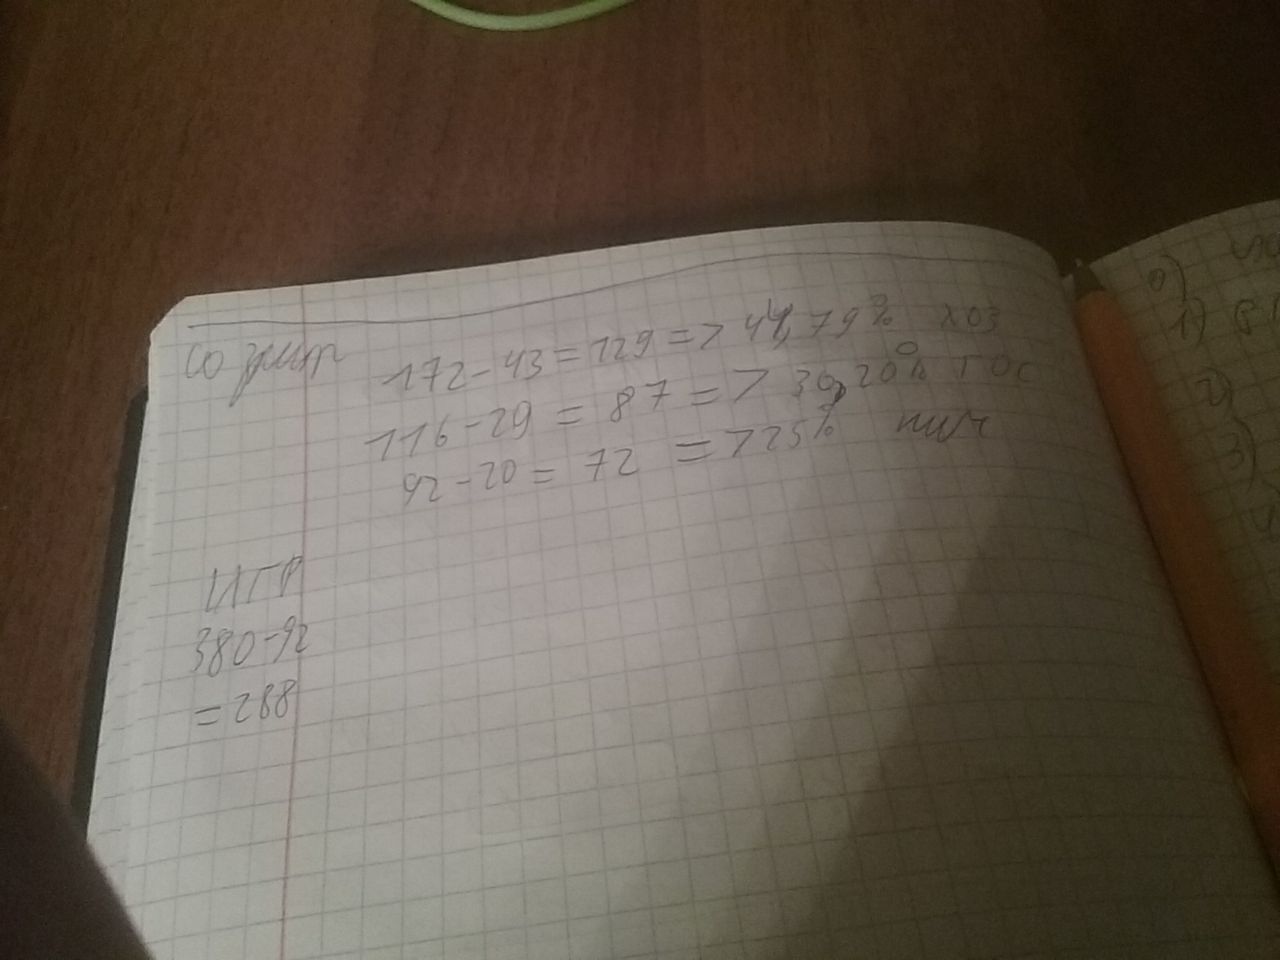 172-43=129=> 44,79% хоз
116-29 = 87 => 30,20% гос
92-20= 72 =>25% нич
ИГР
380-92
=288
0)
1) В
2)
3)